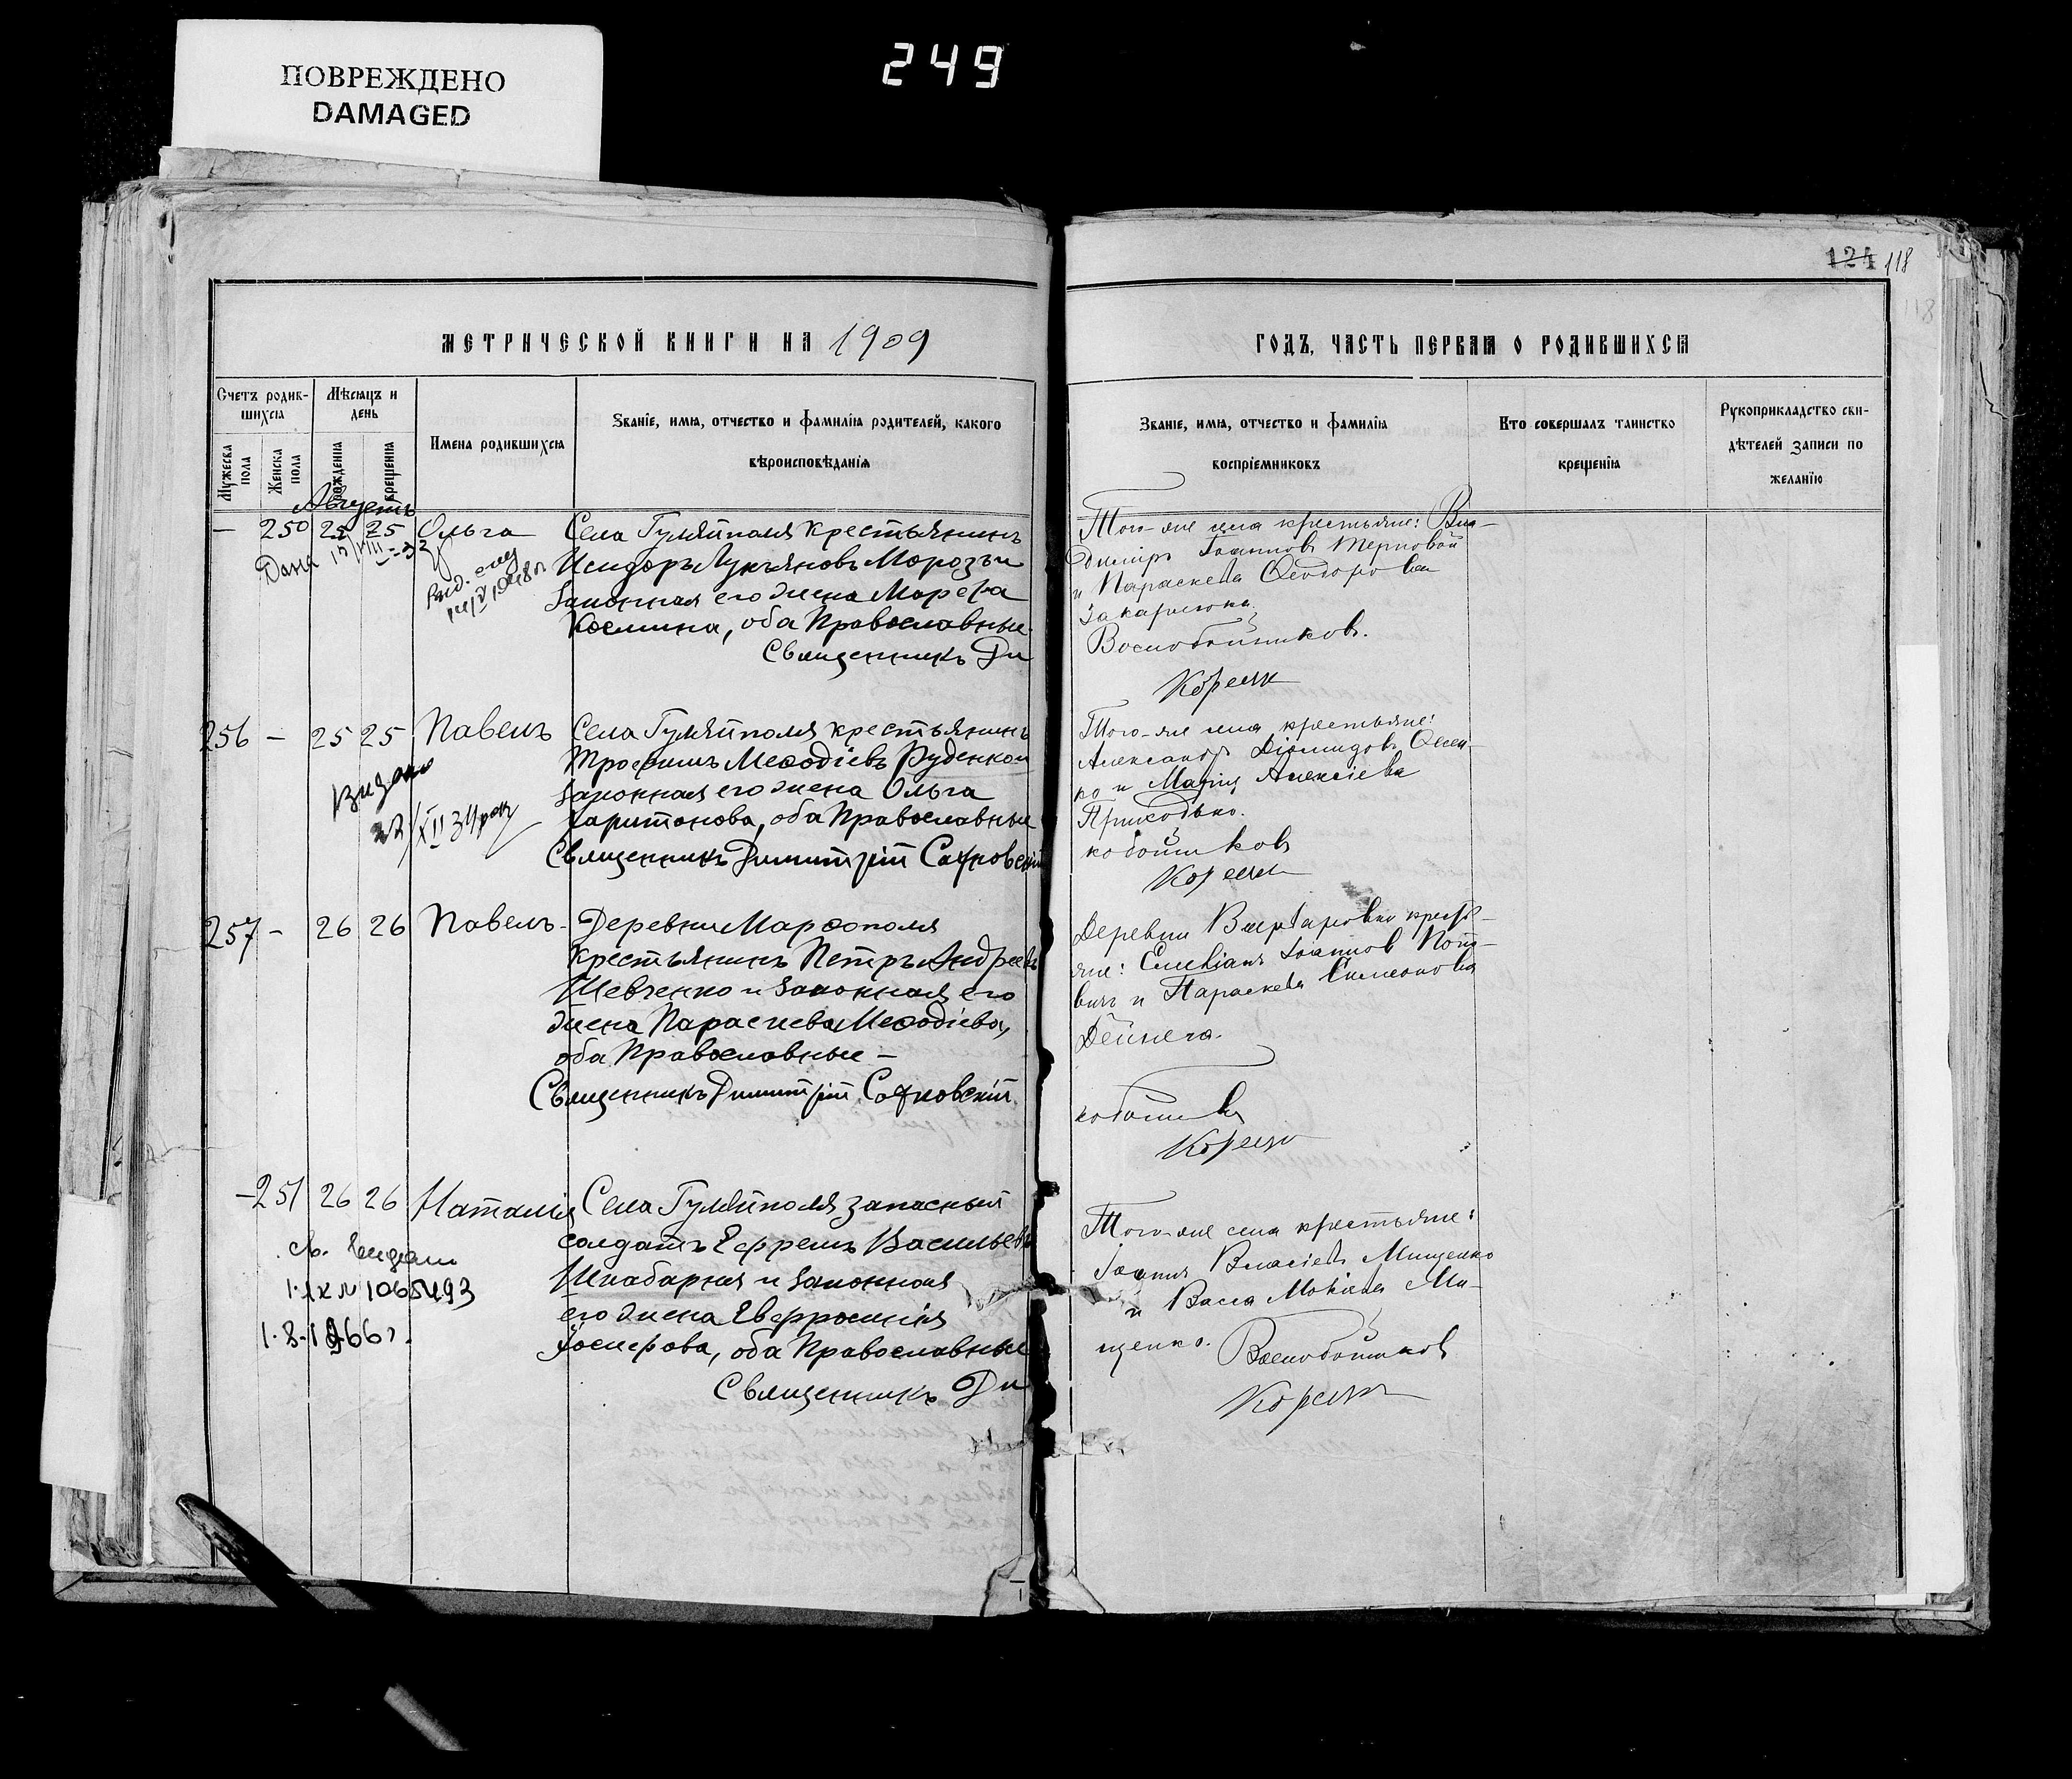 ПОВРЕЖДЕНО
DAMAGED
249
124 118
МЕТРИЧЕСКОЙ КНИГИ НА 1909
ГОДЪ, ЧАСТЬ ПЕРВАЯ О РОДИВШИХСЯ
Счетъ родив-
шихся
Мужеска пола
Женска пола
Мѣсяцъ и
день
рожденія
крещенія
Имена родившихся
Званіе, имя, отчество и фамилія родителей, какого
вѣроисповѣданія
Званіе, имя, отчество и фамилія
воспріемниковъ
Кто совершалъ таинство
крещенія
Рукоприкладство сви-
дѣтелей записи по
желанію
Августъ
— 250 25 25 Ольга
Села Гуляйполя крестьянинъ
Исидоръ Лукьяновъ Морозъ и
законная его жена Марѳа
Космина, оба Православные.
Священникъ Ди
Того-же села крестьяне: Вла-
диміръ Іоанновъ Терновой
и Параскева Ѳеодорова
Воскобойниковъ.
256 — 25 25 Павелъ
Видано
22/XII 34 року
Села Гуляйполя крестьянинъ
Трофимъ Меѳодіевъ Руденко и
законная его жена Ольга
Харитонова, оба Православные
Священникъ Димитрій
Того-же села крестьяне:
Александръ Діомидовъ Овсеи-
ко и Марія Алексіева
Приходько.
257 — 26 26 Павелъ
Деревни Марѳополя
крестьянинъ Петръ Андреевъ
Шевченко и законная его
жена Параскева Меѳодіева,
оба Православные —
Священникъ Димитрій
Деревни крестья-
не: Іоаннов
и Параскева Симеонова
Дейнега.
— 251 26 26 Наталія
1066493
1.8.1966 г.
Села Гуляйполя запасный
солдатъ Ефремъ Васильевъ
Шкабарня и законная
его жена Евфросинія
Іосифова, оба Православные
Священникъ Ди
Того-же села крестьяне:
Іоаннъ Власіевъ Мищенко
и Васса Ми-
щенко.
Воскобойников